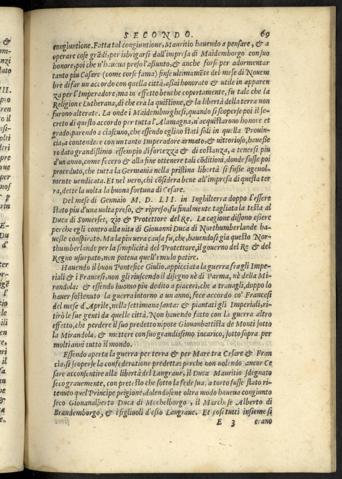 SECONDO. 69
congiuntione. Fatta tal congiuntione, Mauritio hauendo a pensare, & a
operare cose grādi, per isbrigarsi dall'impresa di Maidemborgo con suo
honore, poi che n'haueua preso l'assunto, & anche forse per adormentar
tanto piu Cesare (come corse fama) finse ultimamēte del mese di Nouem
bre di far un accordo con quella città, assai honorato & utile in apparen
za per l'Imperadore; ma in effetto benche copertamente, fu tale che la
Religione Lutherana, di che era la quistione, & la libertà della terra non
furono alterate. La onde i Maidemborghesi, quando si scoperse poi il se-
creto di questo accordo per tutta l'Alamagna, n'acquistarono honore et
grado, parendo a ciascuno, che essendo eglino stati soli in quella Prouin-
cia, a contendere con un tanto Imperadore armato & uittorioso, hauesse
ro dato grandissimo essempio di fortezza & di costanza, a tenersi piu
d'un anno, come fecero & alla fine ottenere tali cōditioni, donde fusse poi
proceduto, che tutta la Germania nella pristina libertà si fusse ageuol-
mente uendicata. Et nel uero, chi osserua bene all'impresa di questa ter
ra, dette la uolta la buona fortuna di Cesare.
Del mese di Gennaio M. D. LII. in Inghilterra doppo l'essere
stato piu d'una uolta preso, & ripreso, fu finalmente tagliata la testa al
Duca di Somerset, zio & Protettore del Re. La cagione dissono essere
perche egli contro alla uita di Giouanni Duca di Northumberlande ha-
uesse conspirato. Ma la piu uera causa fu, che, hauendosi gia questo Nor-
thumberlande per la semplicità del Protettore, il gouerno del Re & del
Regno usurpato, non poteua quell'emulo patire.
Hauendo il buon Pontefice Giulio, appicciata la guerra fra gli Impe-
riali & i Francesi, non gli riuscendo il disegno nè di Parma, nè della Mi-
randola: & essendo huomo piu dedito a piaceri, che a trauagli, doppo lo
hauer sostentato la guerra intorno a un anno, fece accordo co' Francesi
del mese d'Aprile, nella settimana santa: & piantati gli Imperiali, ri-
tirò le sue genti da quelle città. Non hauendo fatto con la guerra altro
effetto, che perdere il suo predetto nipote Giouanbattista de Monti sotto
la Mirandola, & mettere con suo grandissimo incarico, sottosopra per
molti anni tutto il mondo.
Essendo aperta la guerra per terra & per Mare tra Cesare & Fran
cia, si scoperse la confederatione predetta: perche non uolendo ancor Ce
sare acconsentire alla libertà del Langrauе, il Duca Mauritio sdegnato
seco grauemente, con pretesto che sotto la fede sua, a torto fusse stato ri-
tenuto quel Principe prigione, dolendosene oltra modo haueua congiunto
seco Giouanalberto Duca di Mechelborgo, il Marchese Alberto di
Brandemborgo, & i figliuoli d'esso Langraue. Et cosi tutti insieme si
E 3 erano